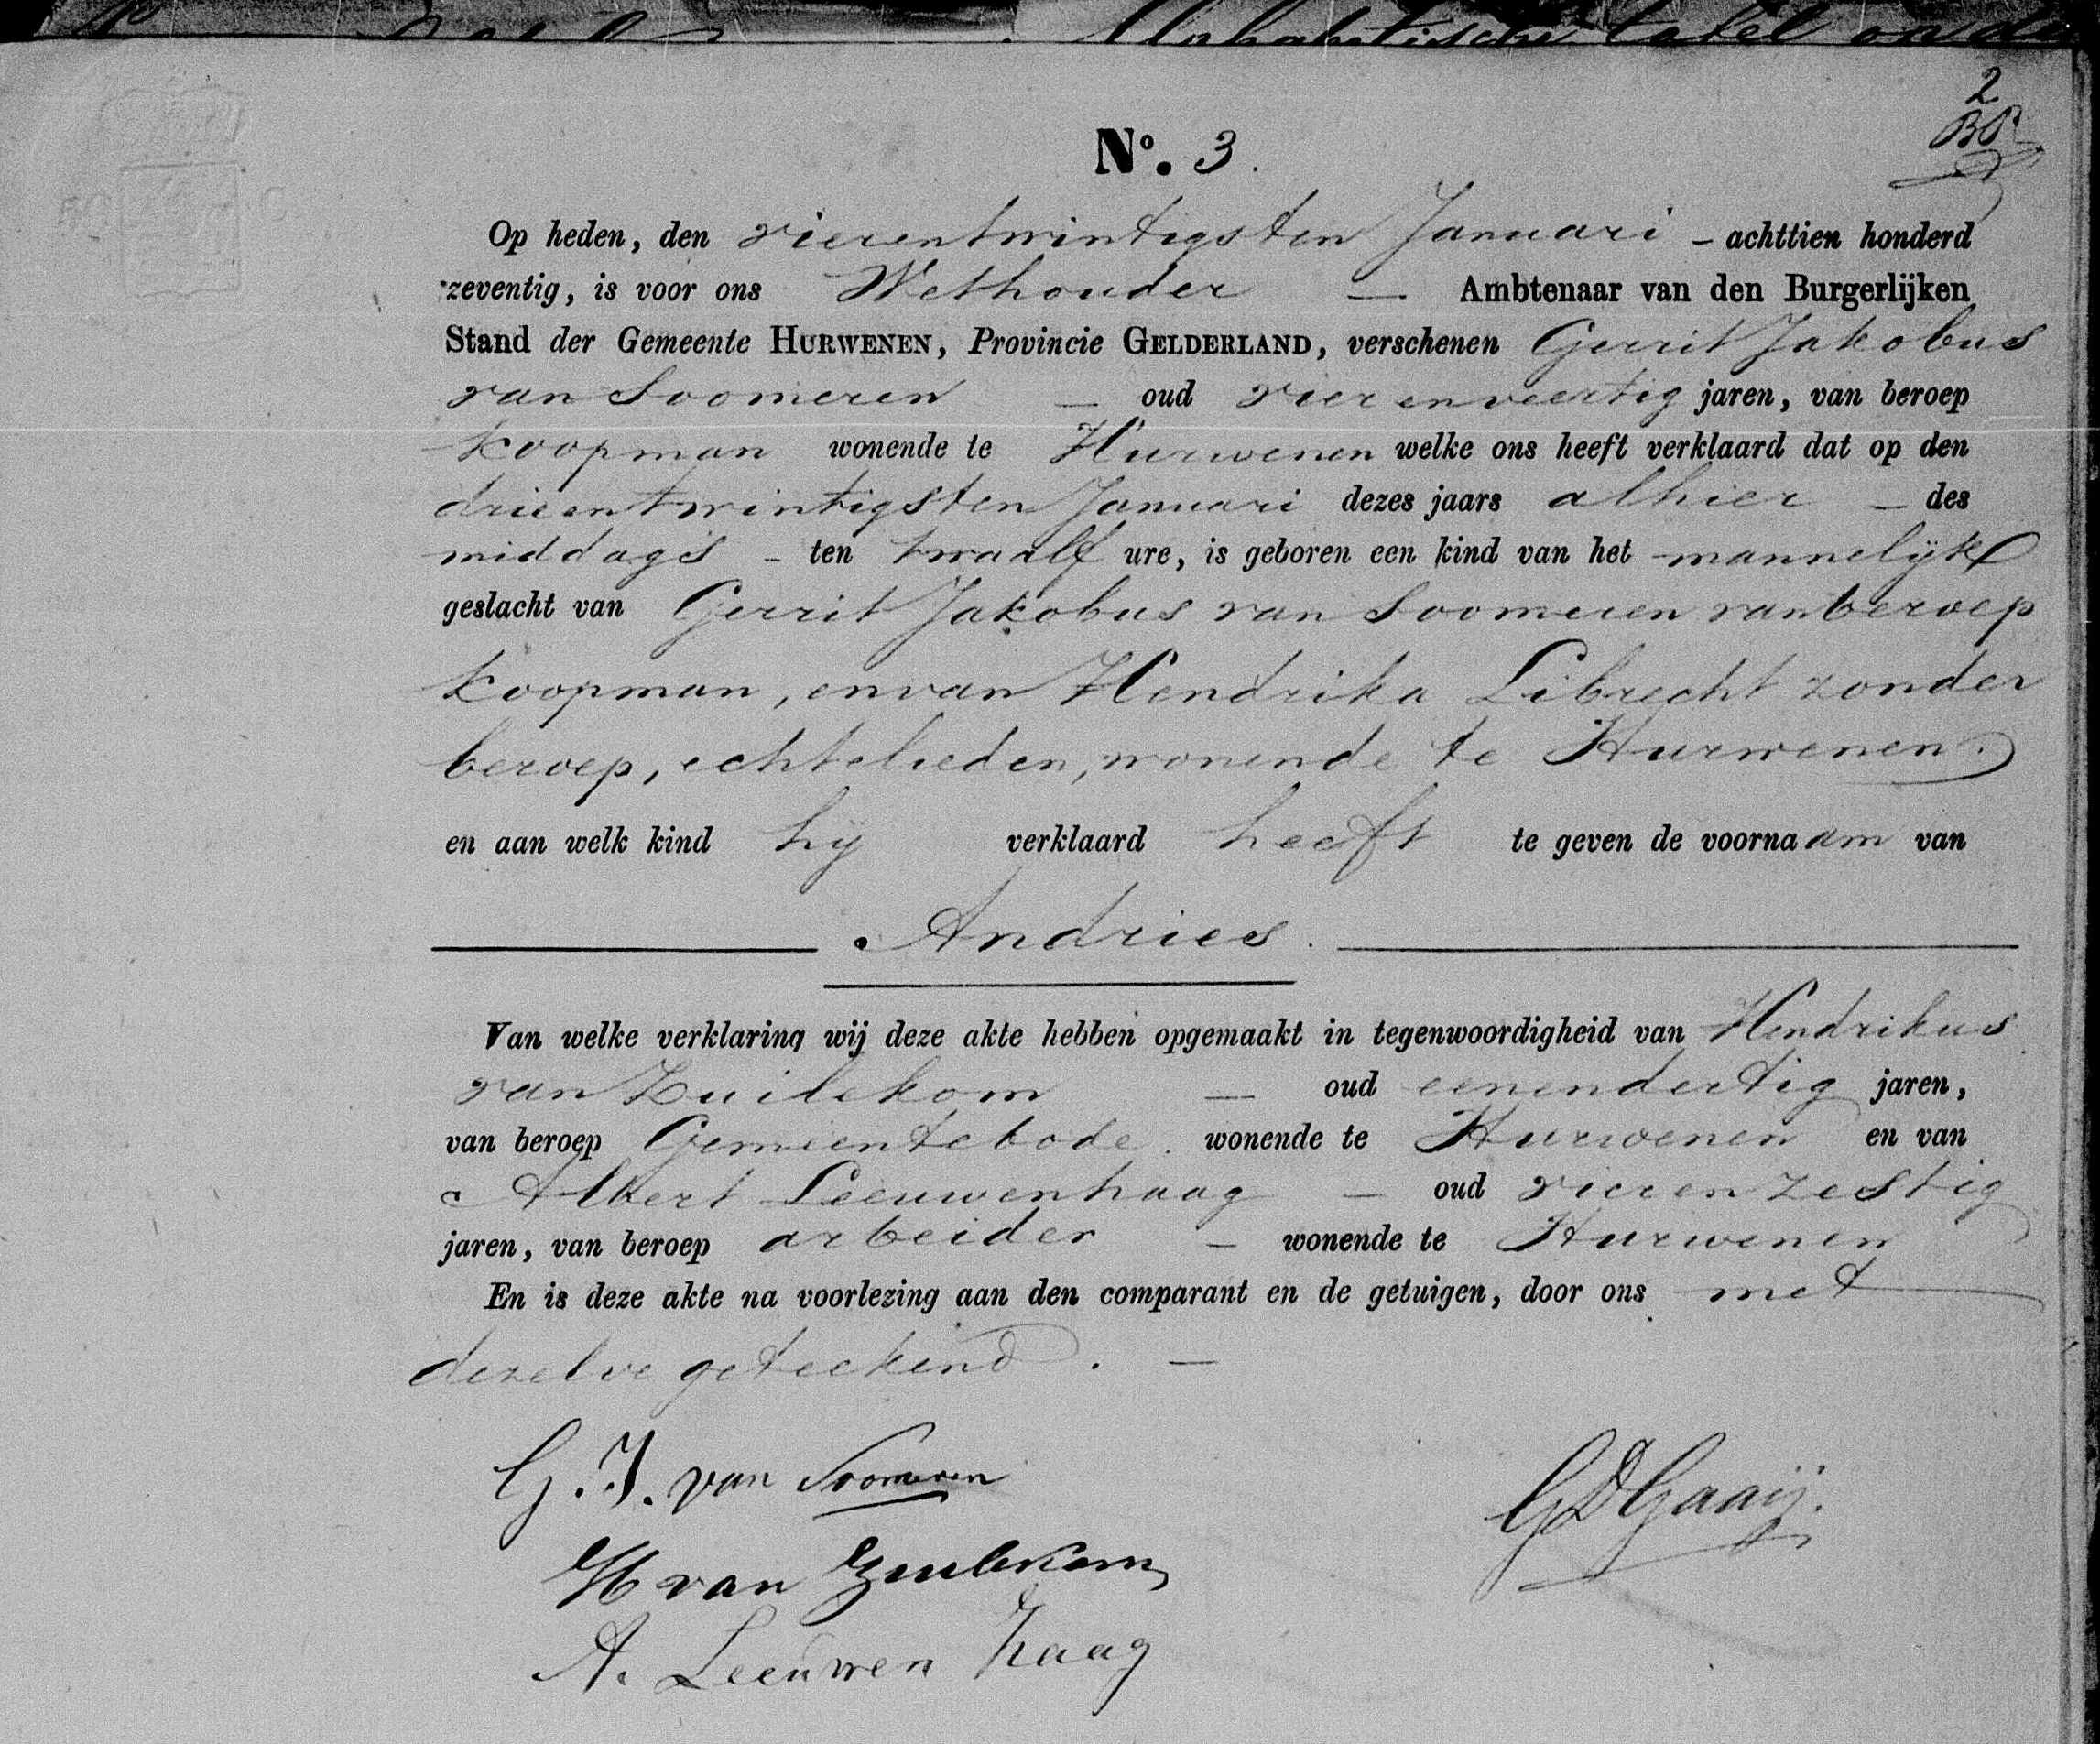 Alphabetische tafel op de
2
No. 3.
Op heden, den vierentwintigsten Januari – achttien honderd
zeventig, is voor ons Wethouder — Ambtenaar van den Burgerlijken
Stand der Gemeente HURWENEN, Provincie GELDERLAND, verschenen Gerrit Jakobus
van Soomeren — oud vierenveertig jaren, van beroep
koopman wonende te Hurwenen welke ons heeft verklaard dat op den
drieentwintigsten Januari dezes jaars alhier – des
middags – ten twaalf ure, is geboren een kind van het mannelijk
geslacht van Gerrit Jakobus van Soomeren van beroep
koopman, en van Hendrika Librecht zonder
beroep, echtelieden, wonende te Hurwenen.
en aan welk kind hij verklaard heeft te geven de voornaam van
Andries.
Van welke verklaring wij deze akte hebben opgemaakt in tegenwoordigheid van Hendrikus
van Zuilekom — oud eenendertig jaren,
van beroep Gemeentebode wonende te Hurwenen en van
Albert Leeuwenhaag — oud vierenzestig
jaren, van beroep arbeider – wonende te Hurwenen
En is deze akte na voorlezing aan den comparant en de getuigen, door ons met
dezelve geteekend. —
G. J. van Soomeren
GD Gaaij.
H van Zuilekom
A. Leeuwen haag